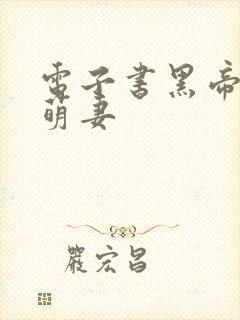 電子書黑帝
萌妻
嚴宏昌